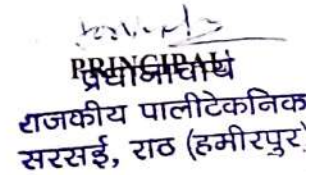 PRINCIPAL
प्रधानाचार्य
राजकीय पालीटेकनिक
सरसई, राठ (हमीरपुर)